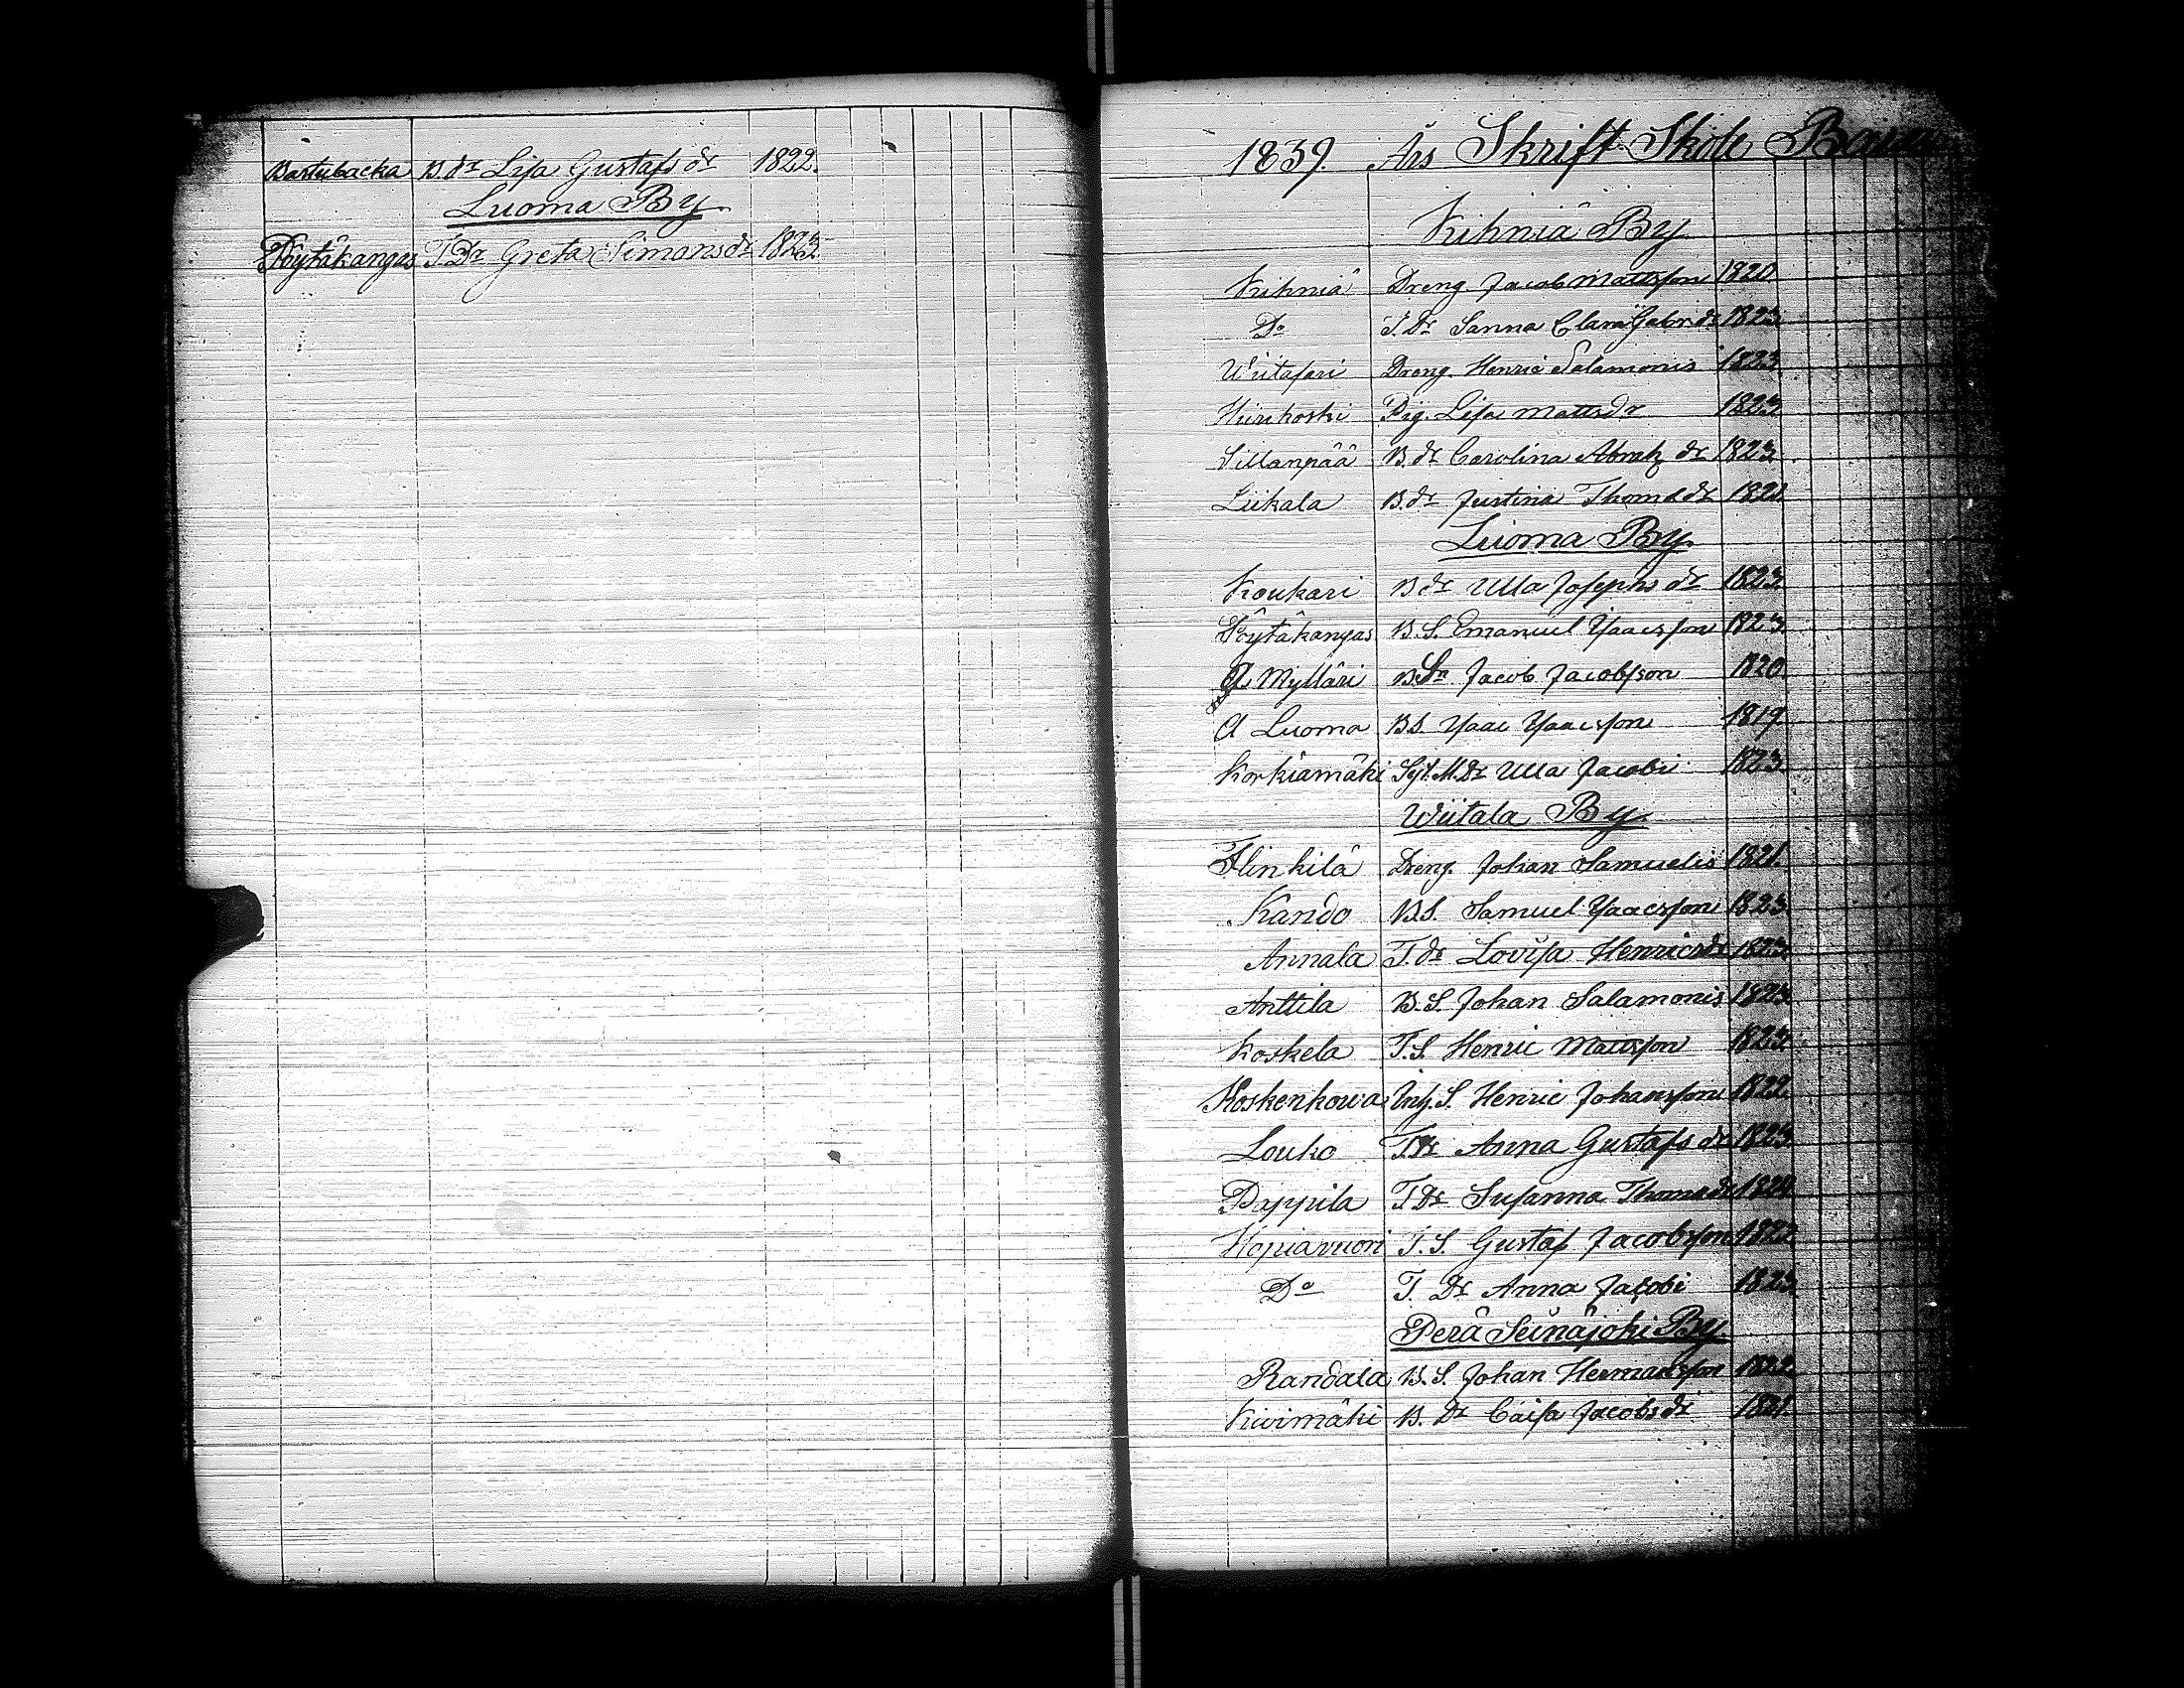 Bastubacka B. dr Lisa Gustafs dr 1822.
Luoma By
Pöytäkangas T. Dr Greta Simons dr 1823.
1839. Års Skrift Skole Barn
Kihniä By
Kihniä Dreng Jacob Mattsson 1820.
Do T. Dr Sanna Clara Gabr. dr 1823.
Wiitasari Dreng. Henric Salamonis 1823.
Hirikoski Pig. Lisa Mattsdr 1823.
Sillanpää B. dr Carolina Abrah dr 1823.
Liikala B. dr Justina Thoma dr 1821.
Luoma By
Koukari B dr Ulla Josephs dr 1823.
Pöytäkangas B. S. Emanuel Isacsson 1823.
A Mylläri B. Sn Jacob Jacobsson 1820.
A Luoma B S. Isac Isacsson 1819.
Korkiamäki Syt. M. Dr Ulla Jacobi 1823.
Wiitala By
Flinkilä Dreng. Johan Samuelis 1821.
Kando B. S. Samuel Isacsson 1823.
Annala T. dr Lovisa Henricsdr 1823.
Anttila B. S. Johan Salamonis 1823.
Koskela T. S. Henric Mattsson 1823.
Koskenkowa Inh. S. Henric Johansson 1822.
Louko T. Dr Anna Gustafs dr 1823.
Pappila T. Dr Susanna Thoma dr
Hojiavuori T. S. Gustaf Jacobsson 1822.
Do T. Dr Anna Jacobi 1823.
Perä Seinäjoki By
Randala B. S. Johan Hermansson 1822.
Kivimäki B. Dr Caisa Jacobs dr 1821.